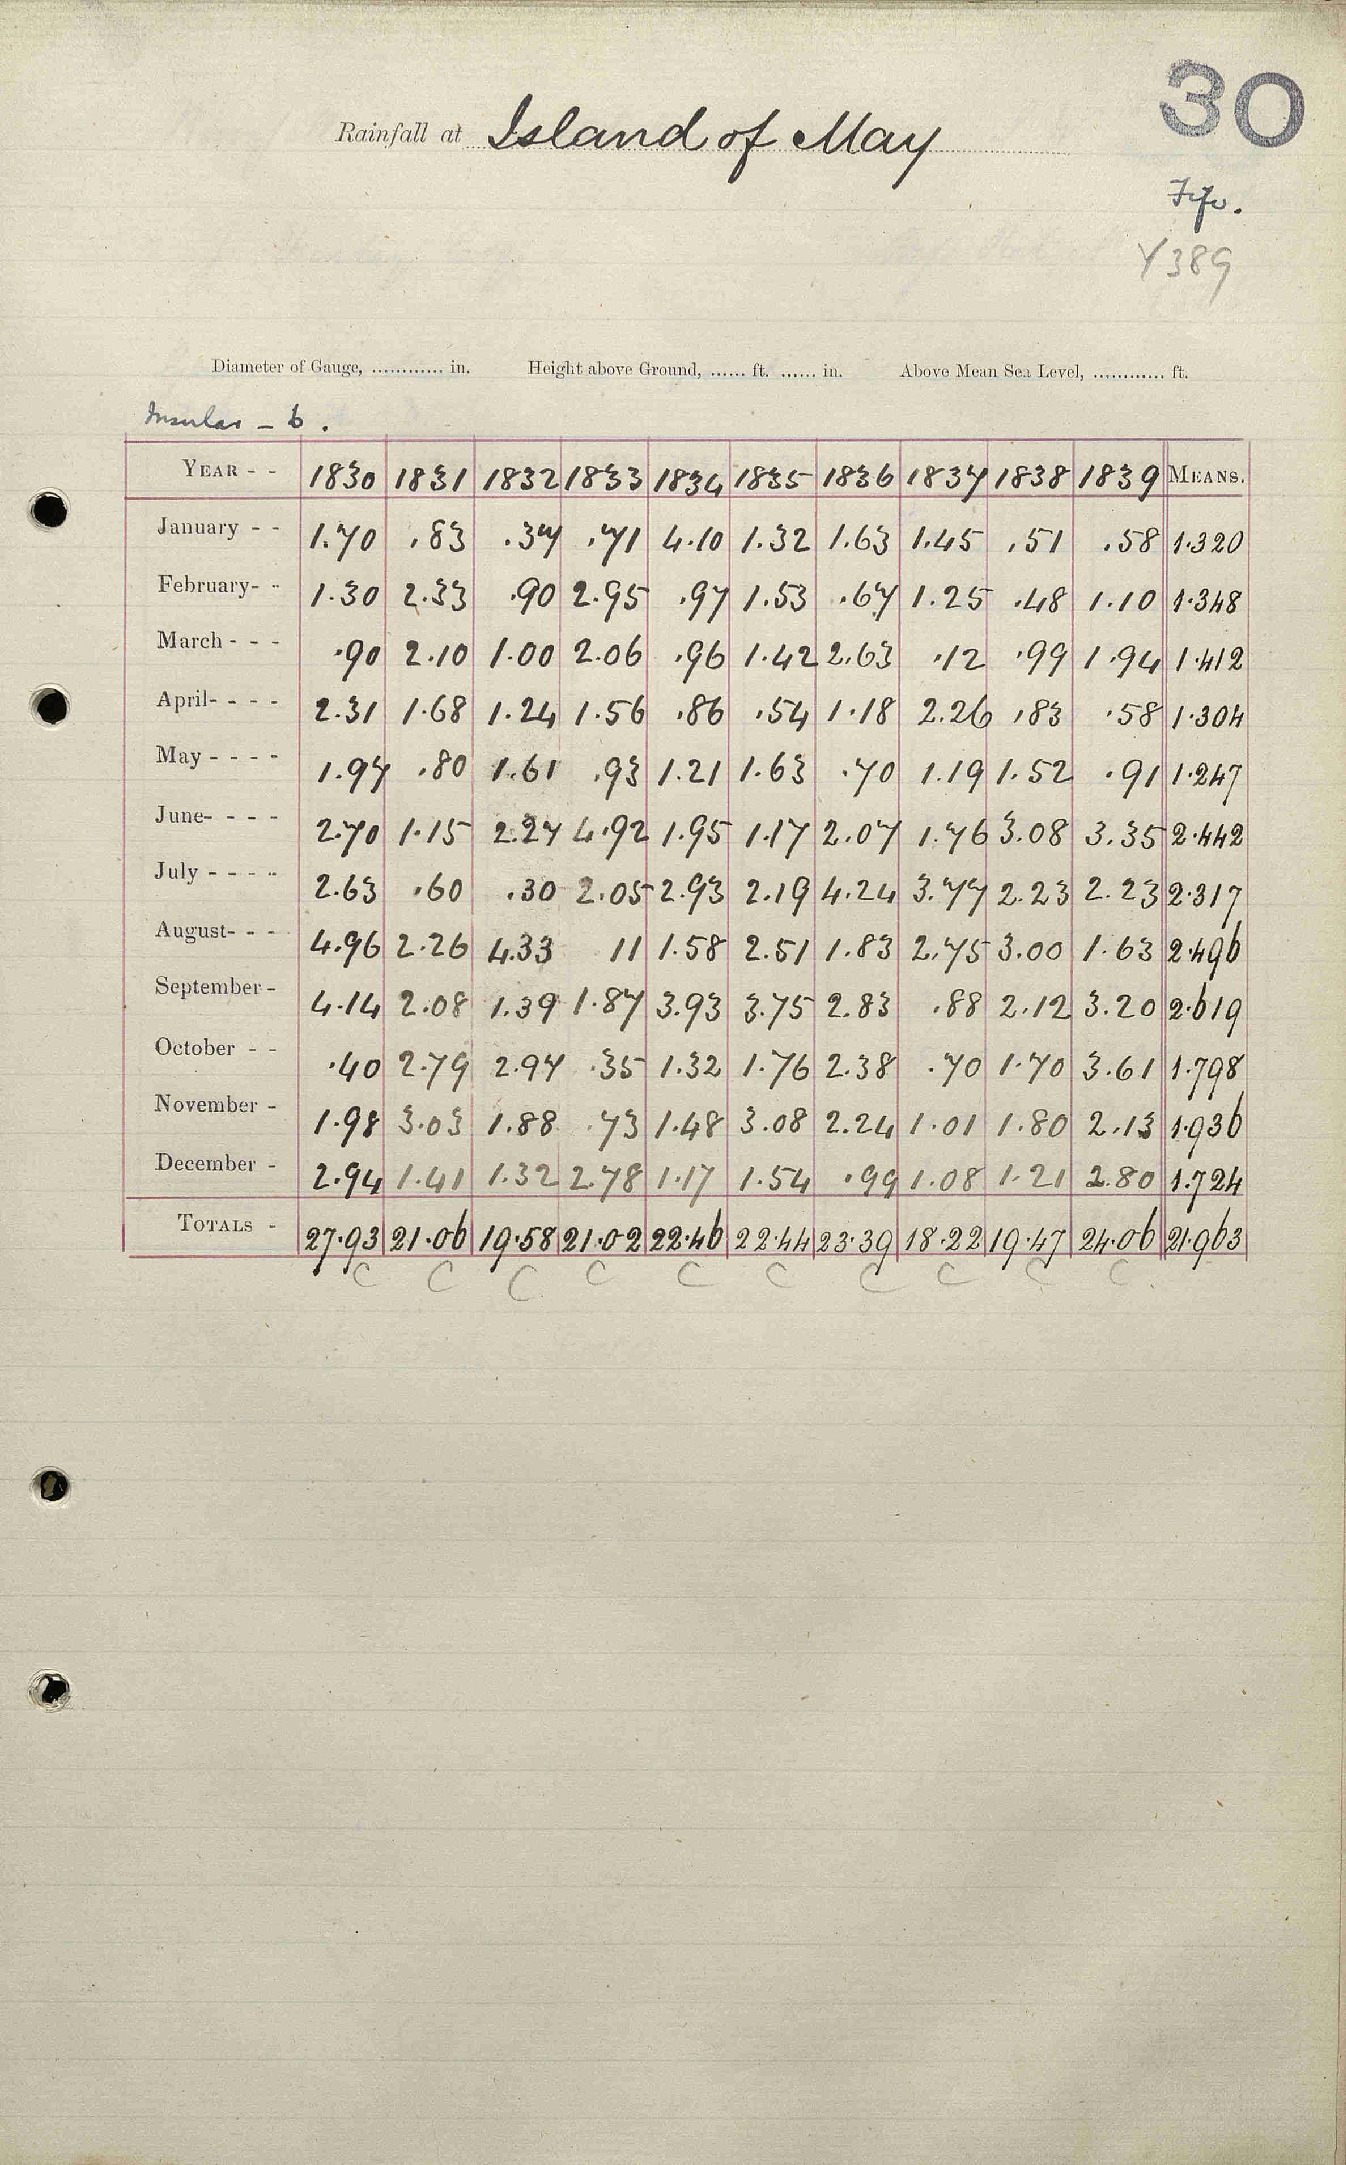 30
Rainfall at Island of May
Fife.
Y389
Diameter of Gauge, ............ in. Height above Ground, ...... ft. ...... in. Above Mean Sea Level, ............ ft.
Insular - 6.
YEAR - - 1830 1831 1832 1833 1834 1835 1836 1837 1838 1839 MEANS.
January - - 1.70 .83 .37 .71 4.10 1.32 1.63 1.45 .51 .58 1.320
February- - 1.30 2.33 .90 2.95 .97 1.53 .67 1.25 .48 1.10 1.348
March - - - .90 2.10 1.00 2.06 .96 1.42 2.63 .12 .99 1.94 1.412
April- - - - 2.31 1.68 1.24 1.56 .86 .54 1.18 2.26 .83 .58 1.304
May - - - - 1.97 .80 1.61 .93 1.21 1.63 .70 1.19 1.52 .91 1.247
June- - - - 2.70 1.15 2.27 4.92 1.95 1.17 2.07 1.76 3.08 3.35 2.442
July - - - - 2.63 .60 .30 2.05 2.93 2.19 4.24 3.77 2.23 2.23 2.317
August- - - 4.96 2.26 4.33 11 1.58 2.51 1.83 2.75 3.00 1.63 2.496
September - 4.14 2.08 1.39 1.87 3.93 3.75 2.83 .88 2.12 3.20 2.619
October - - .40 2.79 2.97 .35 1.32 1.76 2.38 .70 1.70 3.61 1.798
November - 1.98 3.03 1.88 .73 1.48 3.08 2.24 1.01 1.80 2.13 1.936
December - 2.94 1.41 1.32 2.78 1.17 1.54 .99 1.08 1.21 2.80 1.724
TOTALS - 27.93 21.06 19.58 21.02 22.46 22.44 23.39 18.22 19.47 24.06 21.963
C C C C C C C C C C